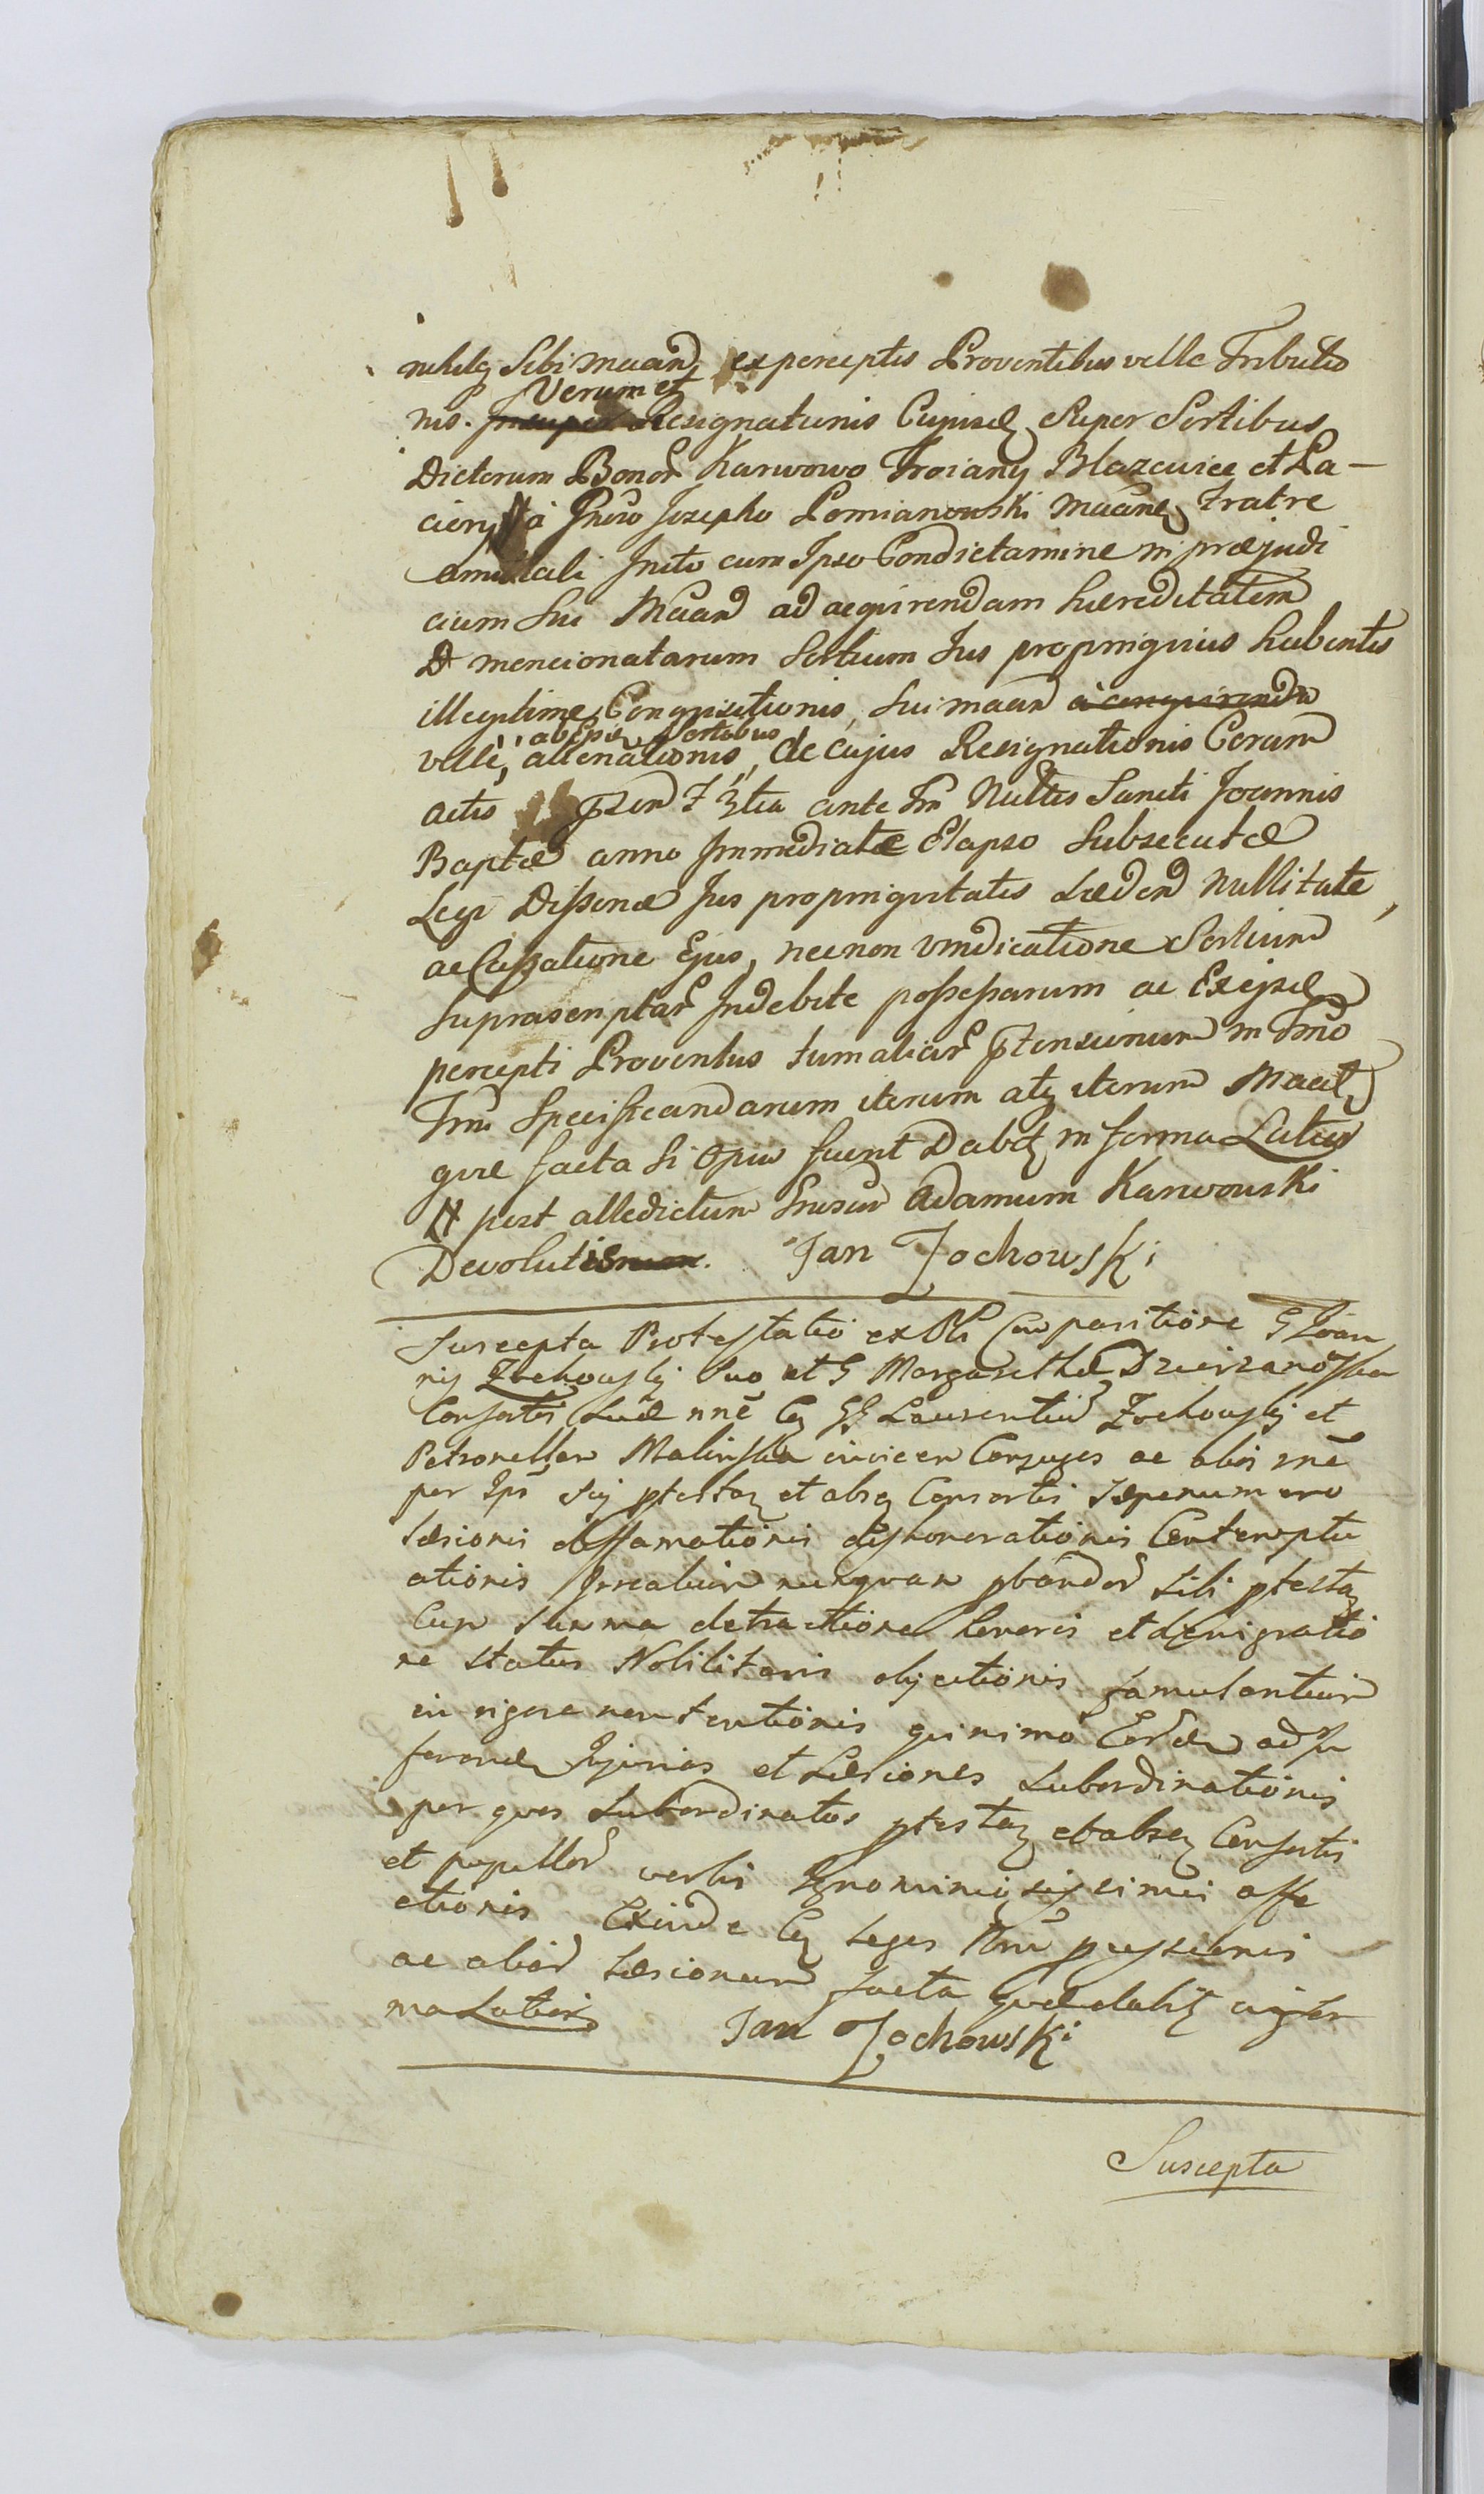 nihilq Sibi maand ex perceptis Proventibus velle Tributio
Verum et
nis. Resignationis Cujusd Super Sortibus
Dictorum Bonor Karwowo Troiany Blazeuice et La-
ciory à Gnoso Josepho Pomianowski Maane Fratre
amitali Inito cum Ipso Condictamine in præjudi
cium Sui Maand ad acquirendam hæreditatem
mencionatarum Sortium Jus propinquius habentis
illegitime Conquisitionis, Sui maand a conquirenda
ab Ipsis Sortibus
velle, alienationis, de cujus Resignationis Coram
actis Ftr 3tia ante Fm Nultis Sancti Joannis
Baptæ anno Immediate Elapso Subsecutæ
Legi Dissonæ Jus propinquitatis Lædend Nullitate,
ac Cassatione Ejus, nec non vindicatione Sortium
Suprascriptar Indebite possessarum ac Exejsd
percepti Proventus tum aliar ptensionum in Tmo
Tmi Specificandarum iterum atq iterum Maait
quæ facta Si Opus fuerit Dabit in forma Latiori
post alledictum Gnosum Adamum Karwowski
Devolut. Jan Zochowski
Suscepta Protestatio ex Obli Comparitione G Joan
nis Zochowskj Suo et G Margarethæ Dzierzanoska
Consortis Suæ nne Cq GG Laurentiu Zochowskj et
Petronellam Malinska invicem Conjuges ac alior rne
per Ips Sui ptestan et absq Consortis Sæpenumero
Læsionis diffamationis dishonorationis Contemptu
ationis Irrealium nunquam pbandor Sibi ptestan
Cum Summa detractione honoris et denigratio
ne Status Nobilitaris objectionis famulantium
in rigore non tentionis quinimo Eord ad In
ferend Injurias et Læsiones Subordinationis
per quos Subordinatos ptestan et absq Consortis
et pupillor verbis Ignominiosissimis affe
ctionis Exinde Cq Leges Rni
ac alior Læsionum facta quæ dabit in for
ma Latiori Jan Zochowski
Suscepta